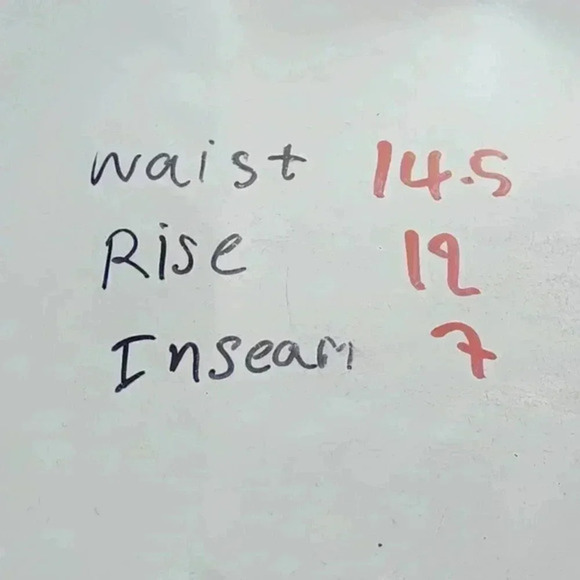 Waist 14.5
Rise 12
Inseam 7